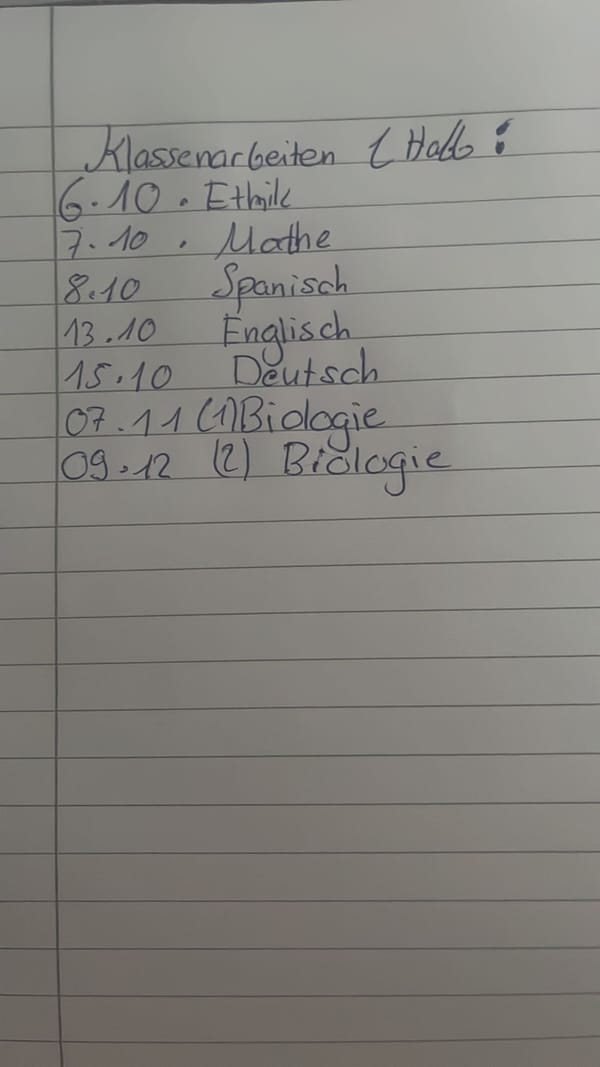 Klassenarbeiten 1 Halb :
6.10 . Ethik
7.10 . Mathe
8.10 Spanisch
13.10 Englisch
15.10 Deutsch
07.11 (1) Biologie
09.12 (2) Biologie